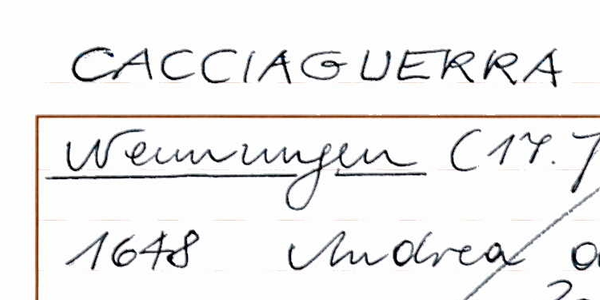 CACCIAGUERRA
Wennungen (17.
1648 Andrea